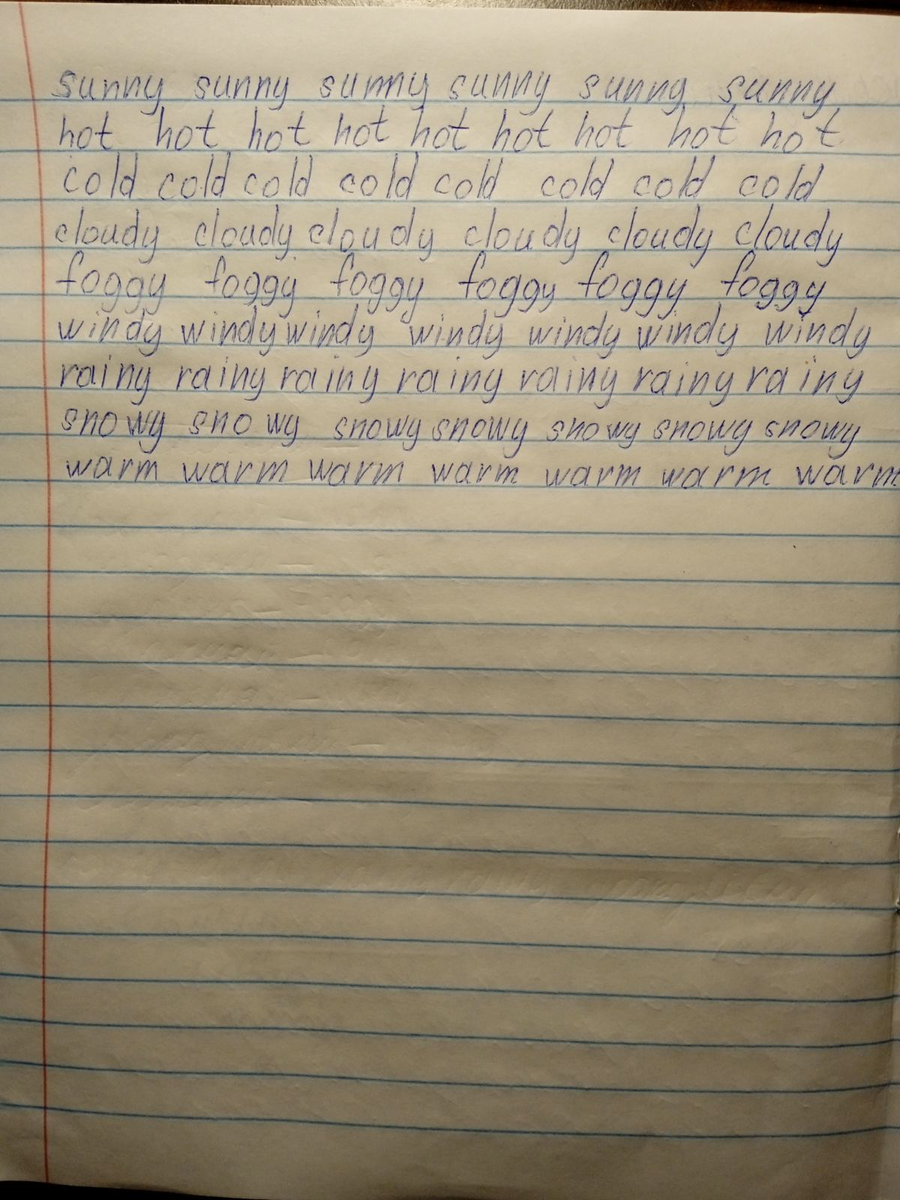 sunny sunny sunny sunny sunny sunny
hot hot hot hot hot hot hot hot hot
cold cold cold cold cold cold cold cold
cloudy cloudy cloudy cloudy cloudy cloudy
foggy foggy foggy foggy foggy foggy
windy windy windy windy windy windy windy
rainy rainy rainy rainy rainy rainy rainy
snowy snowy snowy snowy snowy snowy snowy
warm warm warm warm warm warm warm